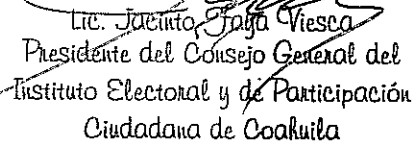 Lic. Jacinto Faya Viesca
Presidente del Consejo General del
Instituto Electoral y de Participación
Ciudadana de Coahuila